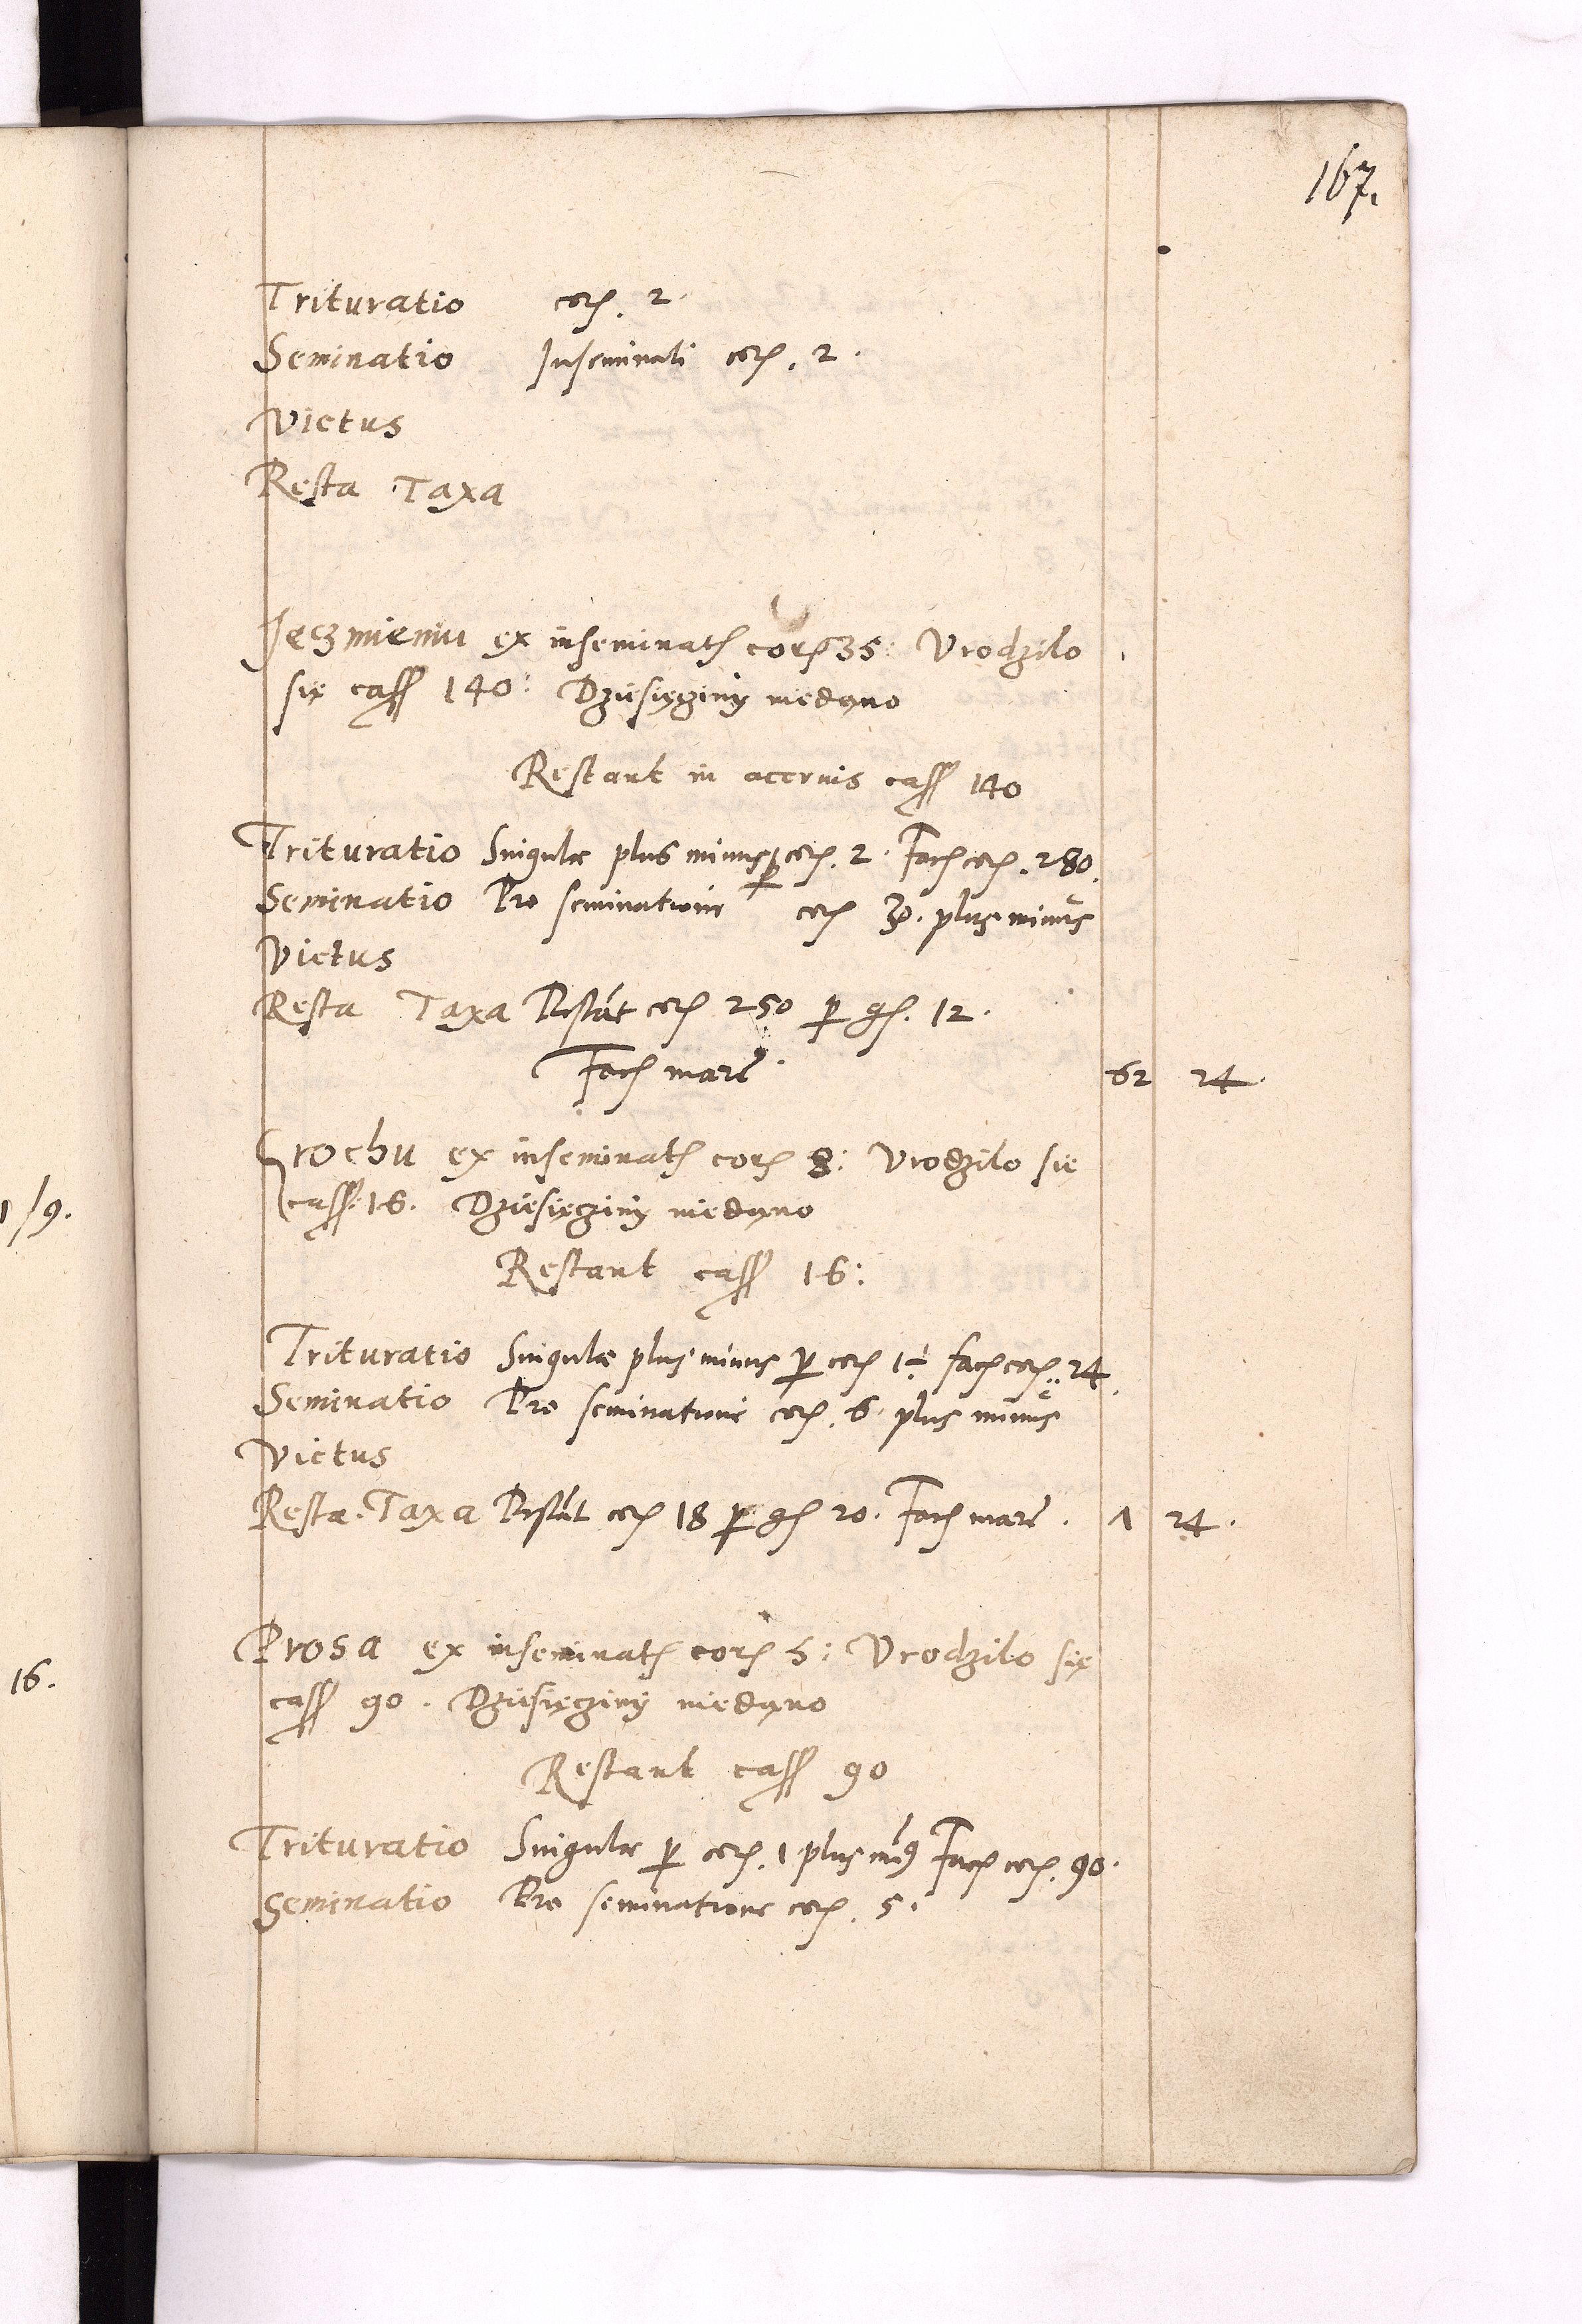 167.
Trituratio corß. 2.
Seminatio Inseminati corß. 2.
Victus
Resta Taxa
Jeczmieniu ex inseminatß corß 35: Vrodzilo
się caßß 140: Dziesięcziny niedano
Restant in aceruis caßß 140
Trituratio Singulæ plus minus p corß. 2. Facß corß. 280.
Seminatio Pro seminatione corß 30. plus minus
Victus
Resta Taxa Restāt corß 250 p gß. 12.
Facß marc. 62 24.
Grochu ex inseminatß corß 8: Vrodzilo się
caßß. 16. Dziesięcziny niedano
1/9.
Restant caßß 16:
Trituratio Singulæ plus minus p corß 1÷ facß corß. 24.
Seminatio Pro seminatione corß. 6. plus minus
Victus
Resta. Taxa Restāt corß 18 p gß 20. Facß marc. 1 24.
Prosa ex inseminatß corß 5: Vrodzilo się
16.
caßß 90. Dziesięcziny niedano
Restant caßß 90
Trituratio Singulæ p corß. 1 plus min9 Facß corß. 90.
Seminatio Pro seminatione corß. 5.